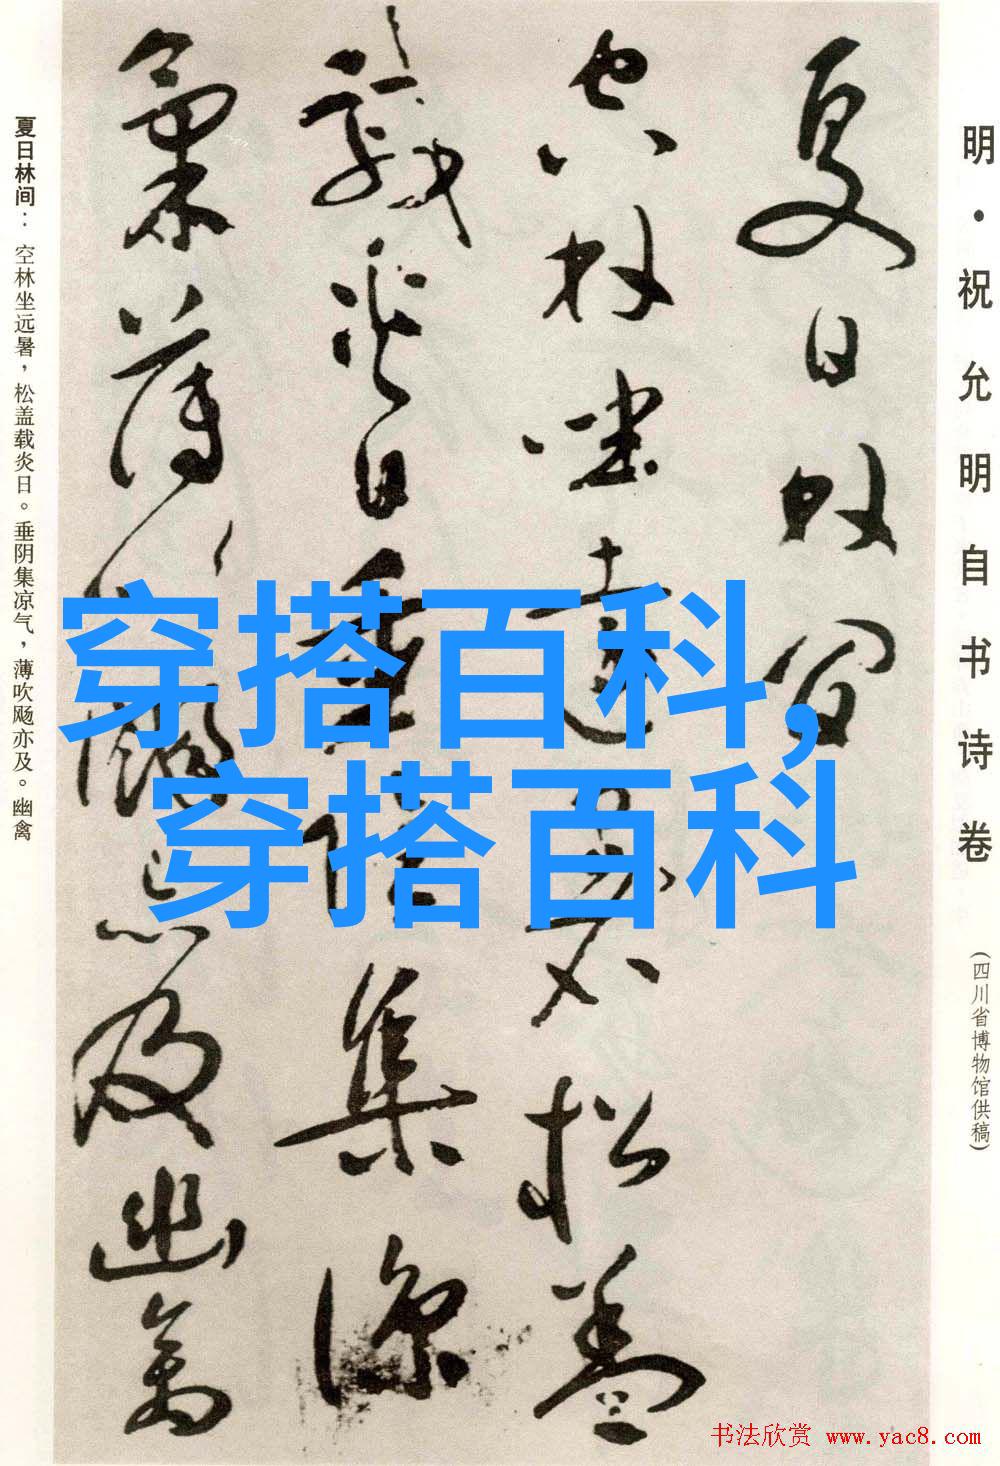 明·祝允明自书诗卷
(四川省博物馆供稿)
夏日林间
空林坐远暑松盖
载炎日垂阴集凉
气薄吹飏亦及幽禽
夏日林间：空林坐远暑，松盖载炎日。垂阴集凉气，薄吹飏亦及。幽禽
穿搭百科,
穿搭百科
书法欣赏 www.yac8.com